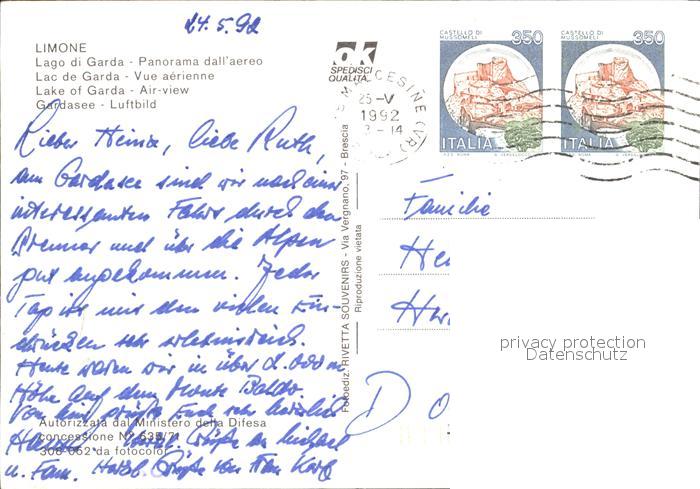 24.5.92
LIMONE
Lago di Garda - Panorama dall'aereo
Lac de Garda - Vue aérienne
Lake of Garda - Air-view
Gardasee - Luftbild
Lieber Heinz, liebe Ruth,
am Gardasee sind wir nach einer
interessanten Fahrt durch den
Brenner und über die Alpen
gut angekommen. Jeder
Tag ist mit den vielen Ein-
drücken sehr erlebnisreich.
Heute waren wir in über 2.000 m
Höhe auf dem Monte Baldo
Von hier grüßt Euch sehr herzlich
Autorizzata dal Ministero della Difesa
Herzl. Grüße an Michael
concessione N° 535/71
308-062 da fotocolor
u. Fam. Herzl. Grüße von
ak
SPEDISCI
QUALITÀ
MALCESINE (VR)
25-V
1992
3-14
Fotoediz. RIVETTA SOUVENIRS - Via Vergnano, 97 - Brescia
Riproduzione vietata
CASTELLO DI
MUSSOMELI
350
ITALIA
CASTELLO DI
MUSSOMELI
350
ITALIA
Familie
privacy protection
Datenschutz
D